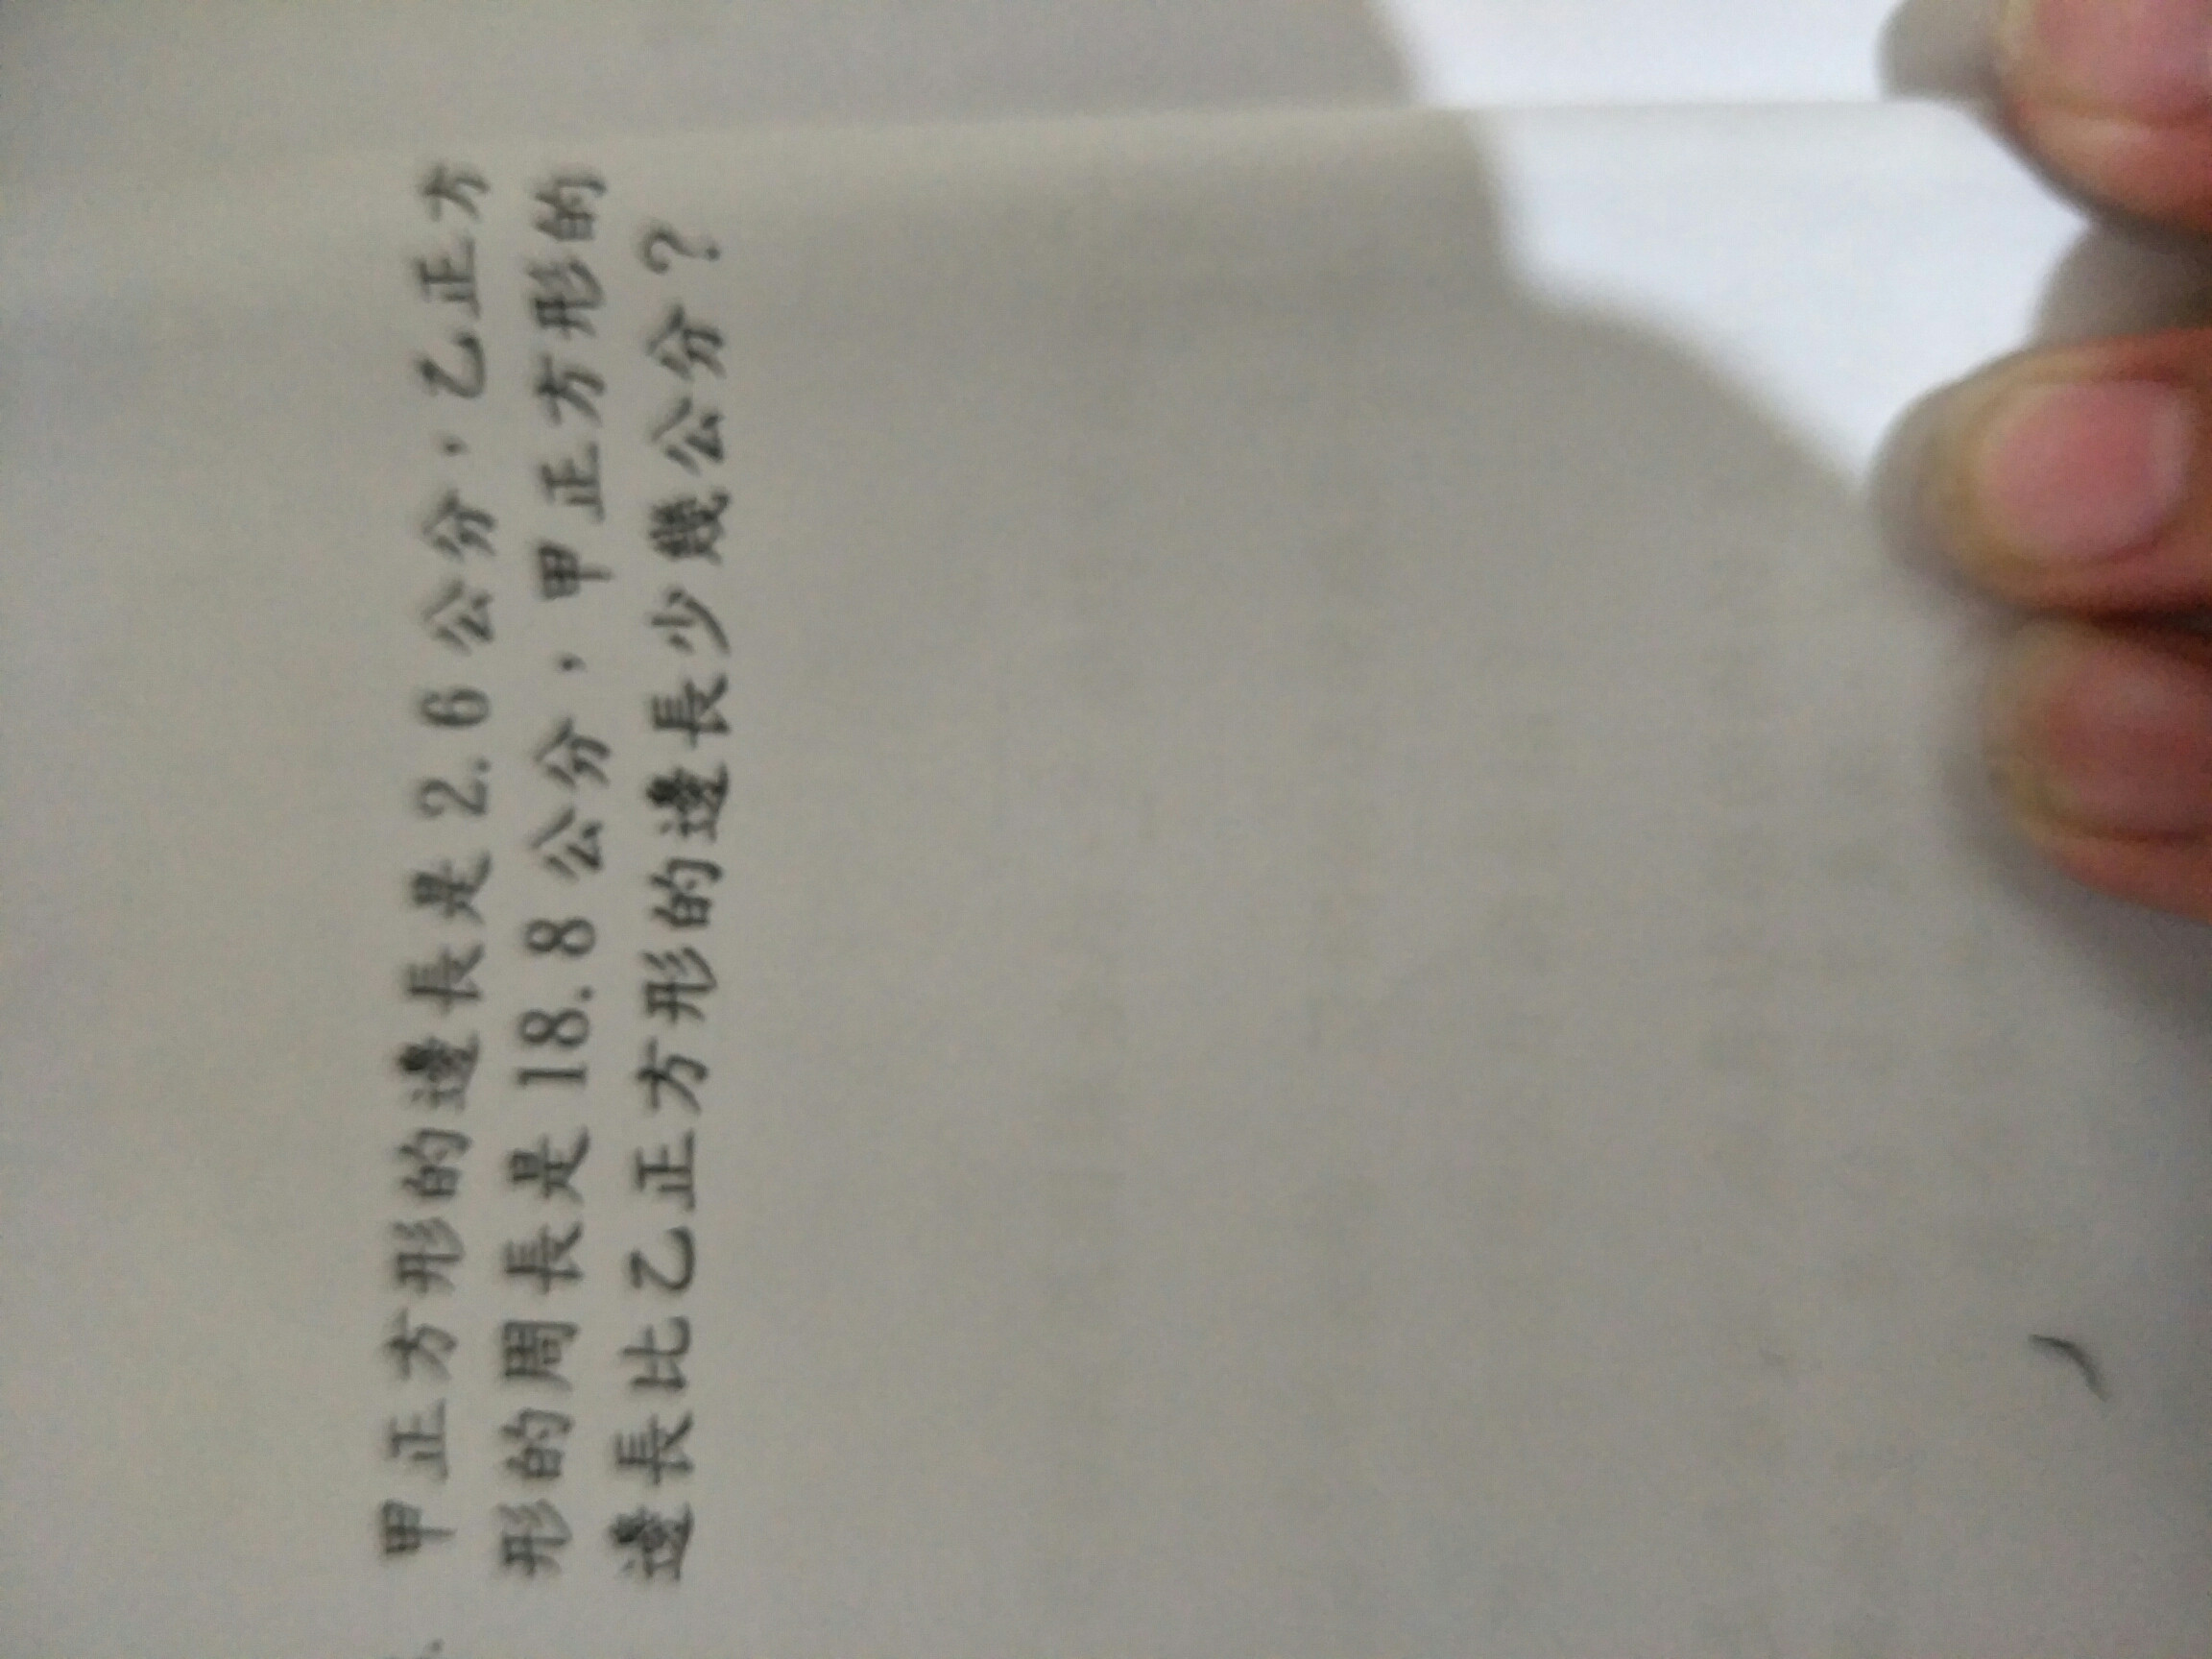 甲正方形的邊長是2.6公分，乙正方
形的周長是18.8公分，甲正方形的
邊長比乙正方形的邊長少幾公分？